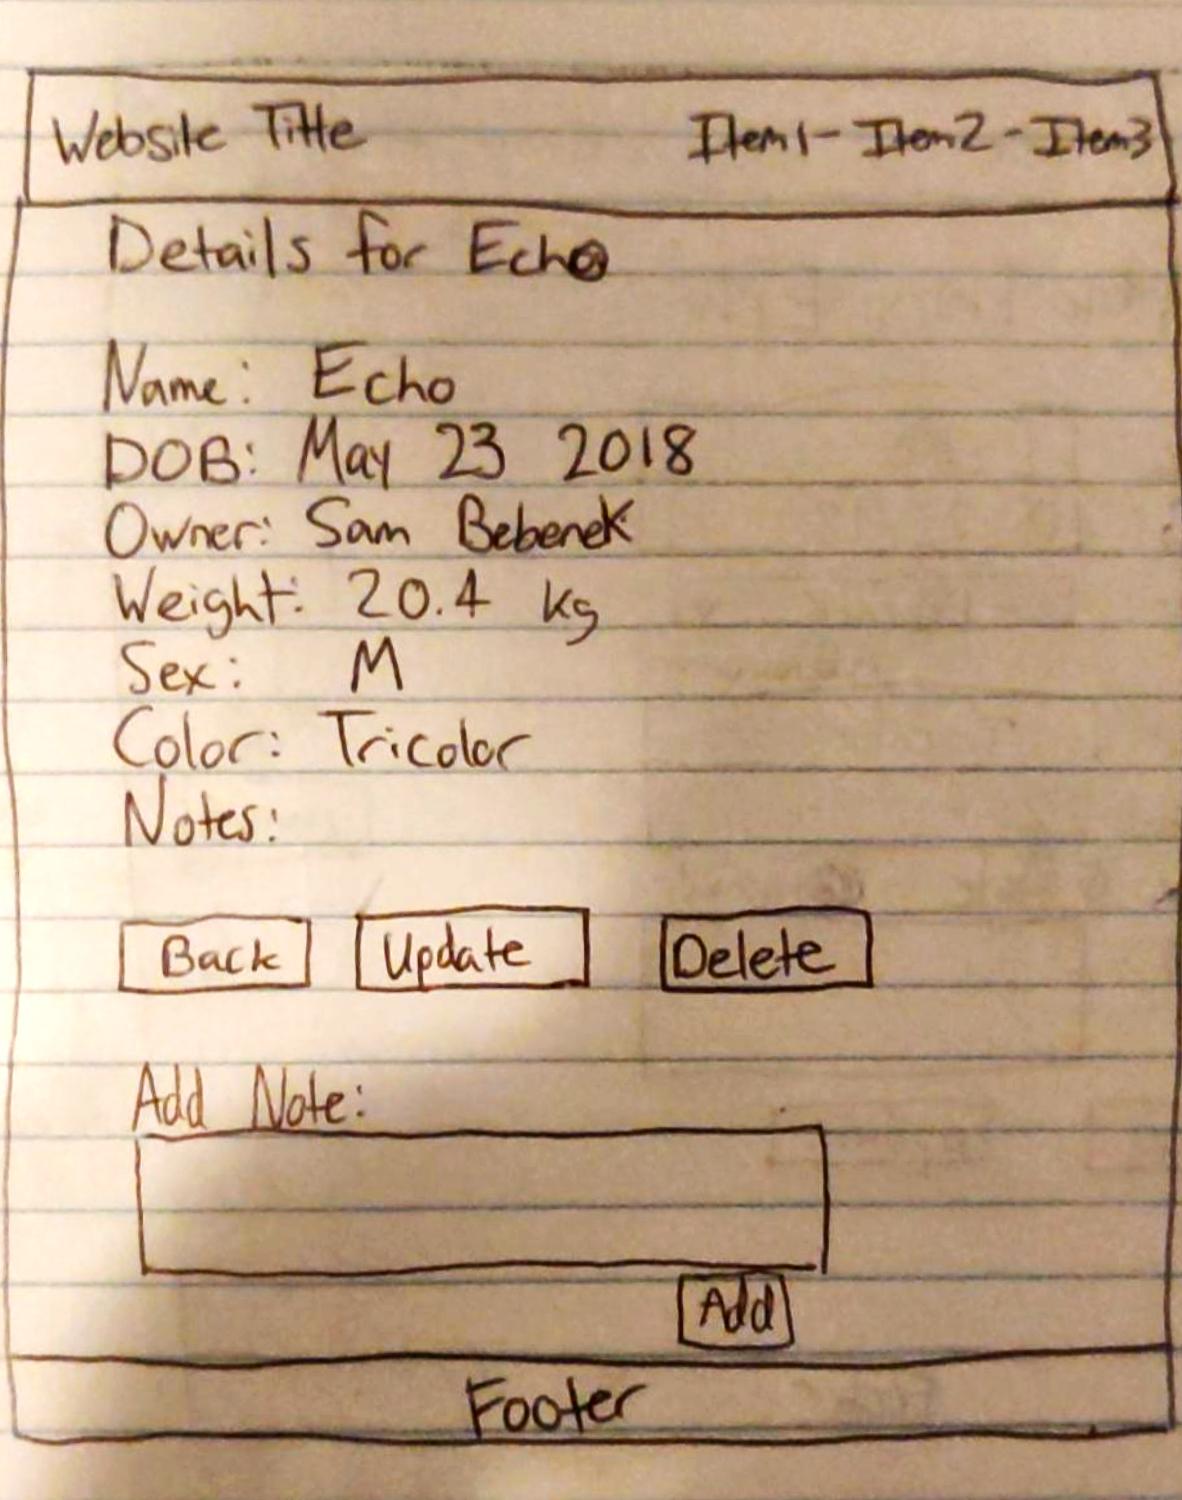 Website Title Item1 - Item2 - Item3
Details for Echo
Name: Echo
DOB: May 23 2018
Owner: Sam Bebenek
Weight: 20.4 kg
Sex: M
Color: Tricolor
Notes:
Back Update Delete
Add Note:
Add
Footer